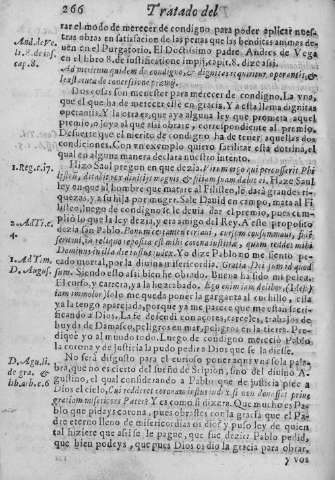 266 Tratado del
rar el modo de merecer de condigno para poder aplicar nues-
tras obras en satisfacion de las penas que las benditas animas de-
uen en el Purgatorio. El Doctissimo padre Andres de Vega
en el libro 8. de iustificatione impij, capit. 8. dize assi.
Ad meritum quidem de condigno, & dignitas requiritur operantis, &
Dos cosas son menester para merecer de condigno. La vna,
que el que ha de merecer esté en gracia. Y a esta llama dignitas
operantis. Y la otra es, que aya alguna ley que prometa aquel
premio, o joya al que assi obrare, correspondiente al premio.
Desuerte que el merito de condigno ha de tener aquellas dos
condiciones. Con vn exemplo quiero facilitar esta dotrina, el
qual en alguna manera declara nuestro intento.
Hizo Saul pregon en que dezia. Virum ergo qui percusserit Phi
listeum, ditabit rex diuitijs magnis, & filiam suam dabit ei. Hazo Saul
ley en que al hombre que matare al Filisteo, le dará grandes ri-
quezas, y a su hija por muger. Sale Dauid en campo, mata al Fi
listeo, luego de condigno se le deuia dar el premio, pues cum-
plio lo que la ley dezia, y era amigo del Rey. A esse proposito
dezia san Pablo. Bonum certamen certaui, cursum consummaui, fidem
seruaui, in reliquo reposita est mihi corona iustitiæ, quam reddet mihi
Dominus in illa die iustus iudex. Yo dize Pablo no me siento pe-
cado mortal, por la diuina misericordia. Gratia Dei sum id quod
sum. Siendo esto assi bien he obrado. Buena ha sido mi pelea.
El curso, y carrera, ya la he acabado. Ego enim iam delibor (idest)
iam immolor solo me queda poner la garganta al cuchillo, essa
ya la tengo aparejada, porque ya me parece que me estan sacri-
ficando a Dios. La fe defendi con açotes, carceles, trabajos de
huyda de Damasco, peligros en mar, peligros en la tierra. Predi-
què yo al mundo todo. Luego de condigno mereciò Pablo
la corona y de justicia la pudo pedir a Dios que se la diesse.
No será disgusto para el curioso poner aqui vna sola pala-
bra, que no es cierto del sueño de Scipion, sino del diuino A-
gustino, el qual considerando a Pablo que de justicia pide a
Dios el cielo, Cui redderet coronam iustus iudex, si non donasset prius
gratiam misericors Pater? Y es como si dixera. Que mucho es Pa-
blo que pidays corona, pues obrastes con la gracia que el Pa-
dre eterno lleno de misericordias os dio? y puso ley de quien
tal hiziere que assi se le pague, que fue dezir Pablo pedid,
que bien podeys, que pues Dios os dio la gracia para obrar,
y vos
And. de Ve.
li. 8. de ius.
cap. 8.
1. Reg. c. 17.
2. Ad Ti. c.
4.
1. Ad Ti. m.
D. Augus.
D. Agu. li.
de gra. &
lib. arb. c. 6